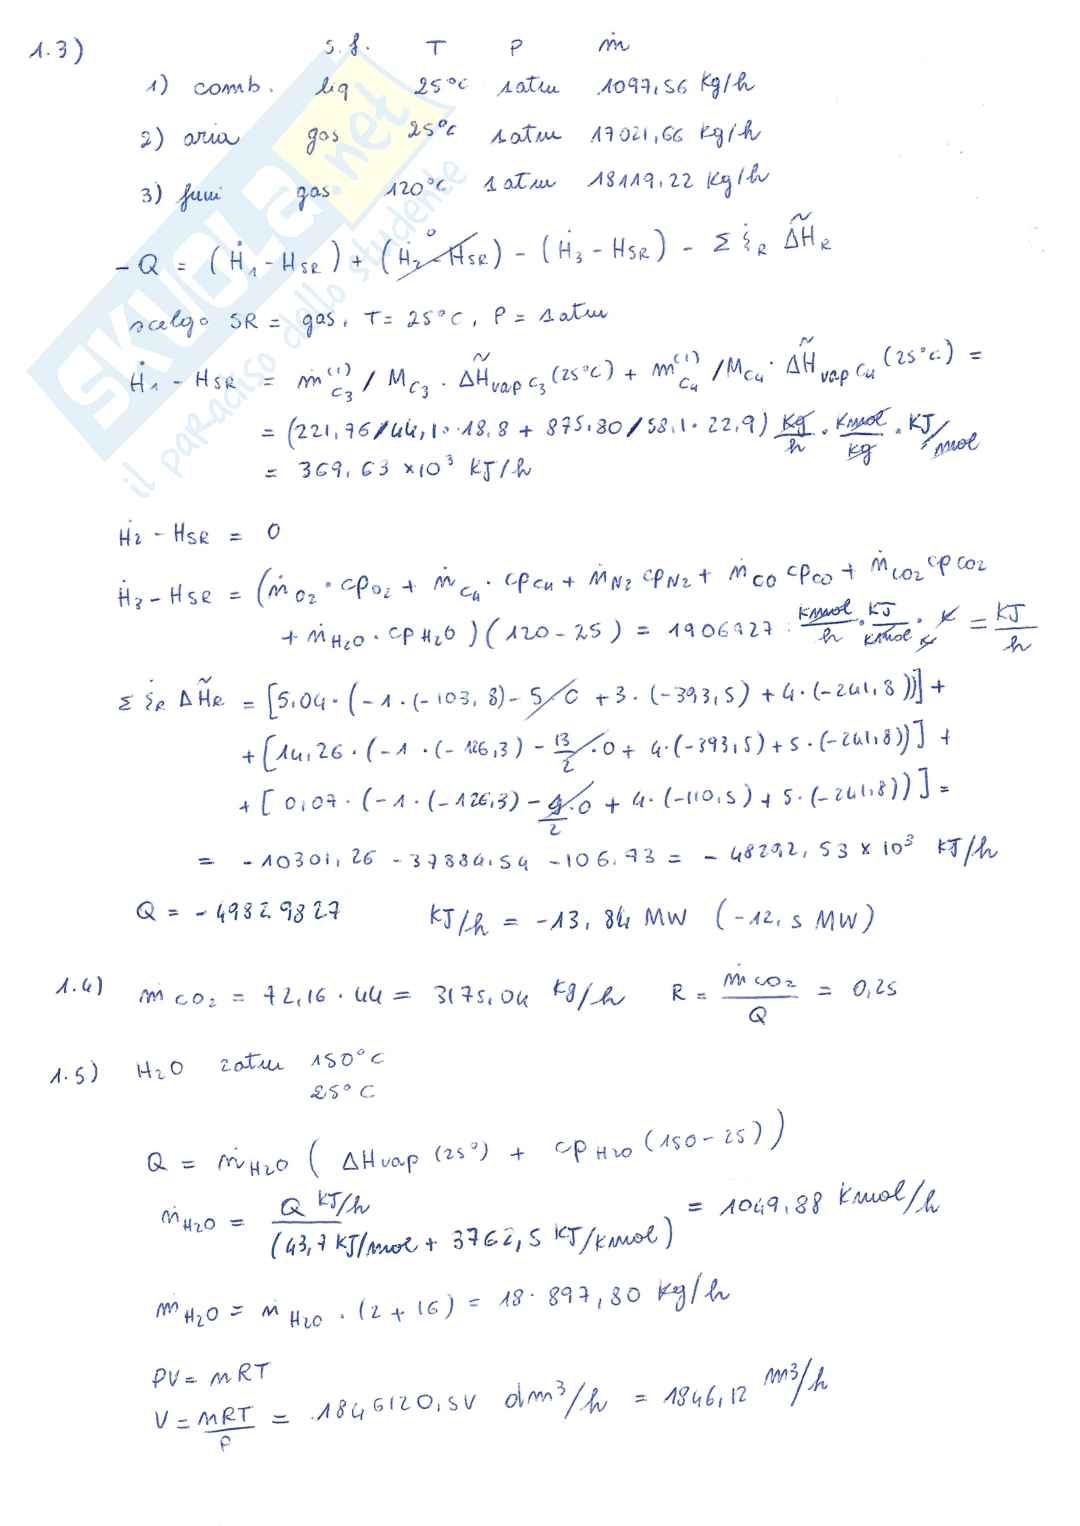 1.3) s.f. T P ṁ
1) comb. liq 25°C 1atm 1097,56 Kg/h
2) aria gas 25°C 1atm 17021,66 Kg/h
3) fumi gas 120°C 1atm 18119,22 Kg/h
-Q = (Ḣ1 - HSR) + (Ḣ2 - HSR) 0 - (Ḣ3 - HSR) - Σ ξ̇R ΔH̃R
scelgo SR = gas, T = 25°C, P = 1atm
Ḣ1 - HSR = ṁ(1)C3 / MC3 · ΔH̃vap C3 (25°C) + ṁ(1)C4 / MC4 · ΔH̃vap C4 (25°C) =
= (221,76/44,1 · 18,8 + 875,80/58,1 · 22,9) Kg/h · Kmol/Kg · KJ/mol
= 369,63 ×10³ KJ/h
Ḣ2 - HSR = 0
Ḣ3 - HSR = (ṁO2 · cpO2 + ṁC4 · cpC4 + ṅN2 cpN2 + ṁCO cpCO + ṁCO2 cpCO2
+ ṁH2O · cpH2O) (120 - 25) = 1906927 Kmol/h · KJ/Kmol K · K = KJ/h
Σ ξ̇R ΔH̃R = [5,04 · (-1 · (-103,8) - 5/0 + 3 · (-393,5) + 4 · (-241,8))] +
+ [14,26 · (-1 · (-126,3) - 13/2 · 0 + 4 · (-393,5) + 5 · (-241,8))] +
+ [0,07 · (-1 · (-126,3) - 9/2 · 0 + 4 · (-110,5) + 5 · (-241,8))] =
= -10301,26 - 37884,54 - 106,73 = -48292,53 × 10³ KJ/h
Q = -49829827 KJ/h = -13,84 MW (-12,5 MW)
1.4) ṁCO2 = 72,16 · 44 = 3175,04 Kg/h R = ṁCO2/Q = 0,25
1.5) H2O 2atm 150°C
25°C
Q = ṁH2O (ΔHvap (25°) + cpH2O (150-25))
ṁH2O = Q KJ/h / (43,7 KJ/mol + 3762,5 KJ/Kmol) = 1049,88 Kmol/h
ṁH2O = ṅH2O · (2+16) = 18·897,80 Kg/h
PV = nRT
V = nRT/P = 1846120,5V dm³/h = 1846,12 m³/h
SKUOLA.net
il paradiso dello studente